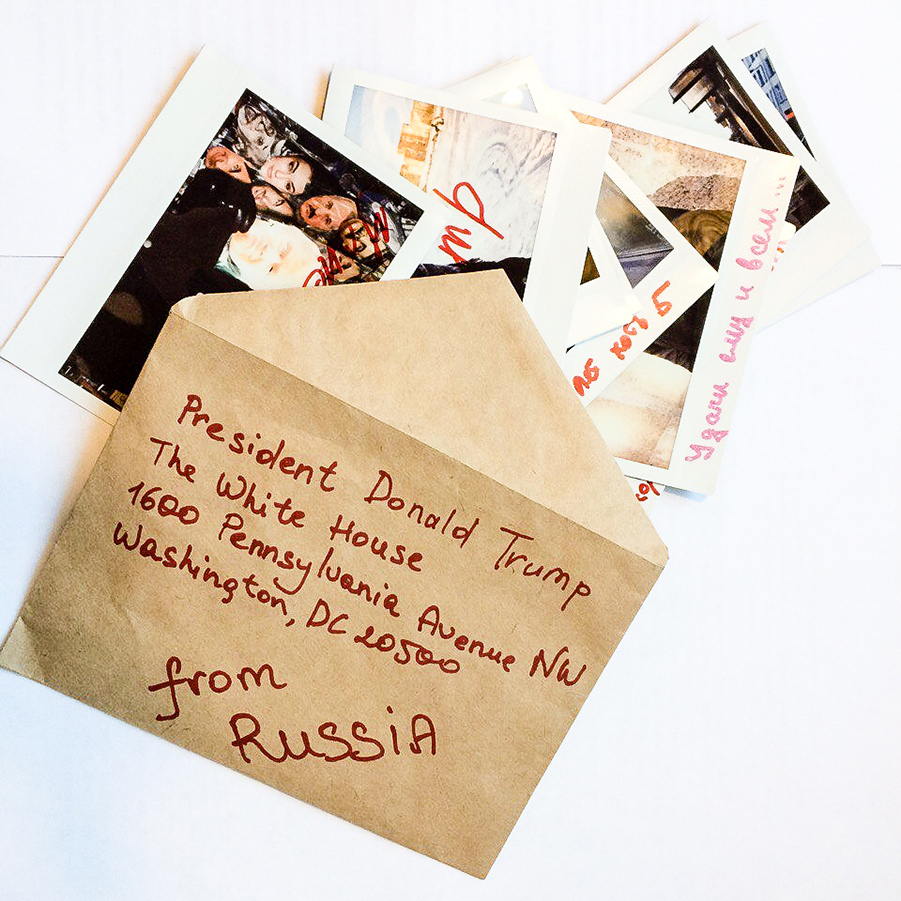 President Donald Trump
The White House
1600 Pennsylvania Avenue NW
Washington, DC 20500
from
RUSSIA
Удачи ему и всем ...